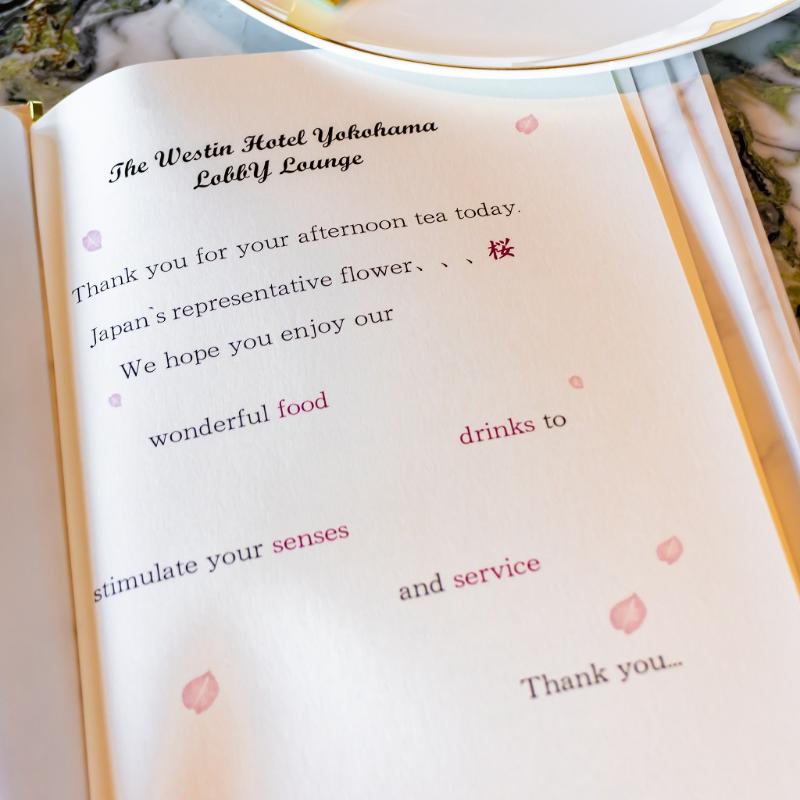 The Westin Hotel Yokohama
LobbY Lounge
Thank you for your afternoon tea today.
Japan`s representative flower、、、桜
We hope you enjoy our
wonderful food
drinks to
stimulate your senses
and service
Thank you...